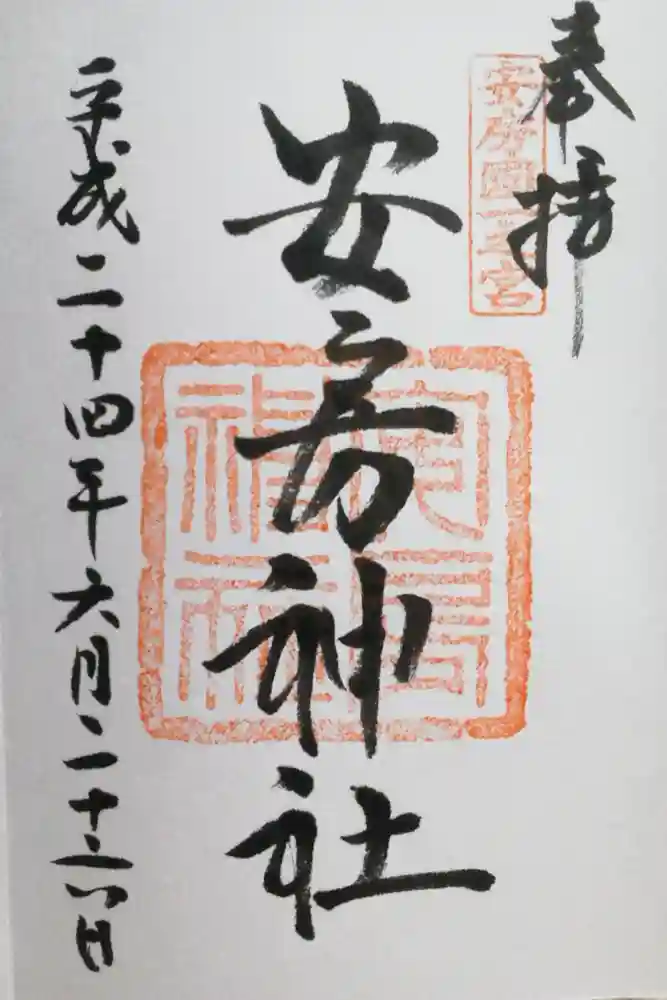 奉拝
安房國一之宮
安房神社
安房神社
平成二十四年六月二十六日